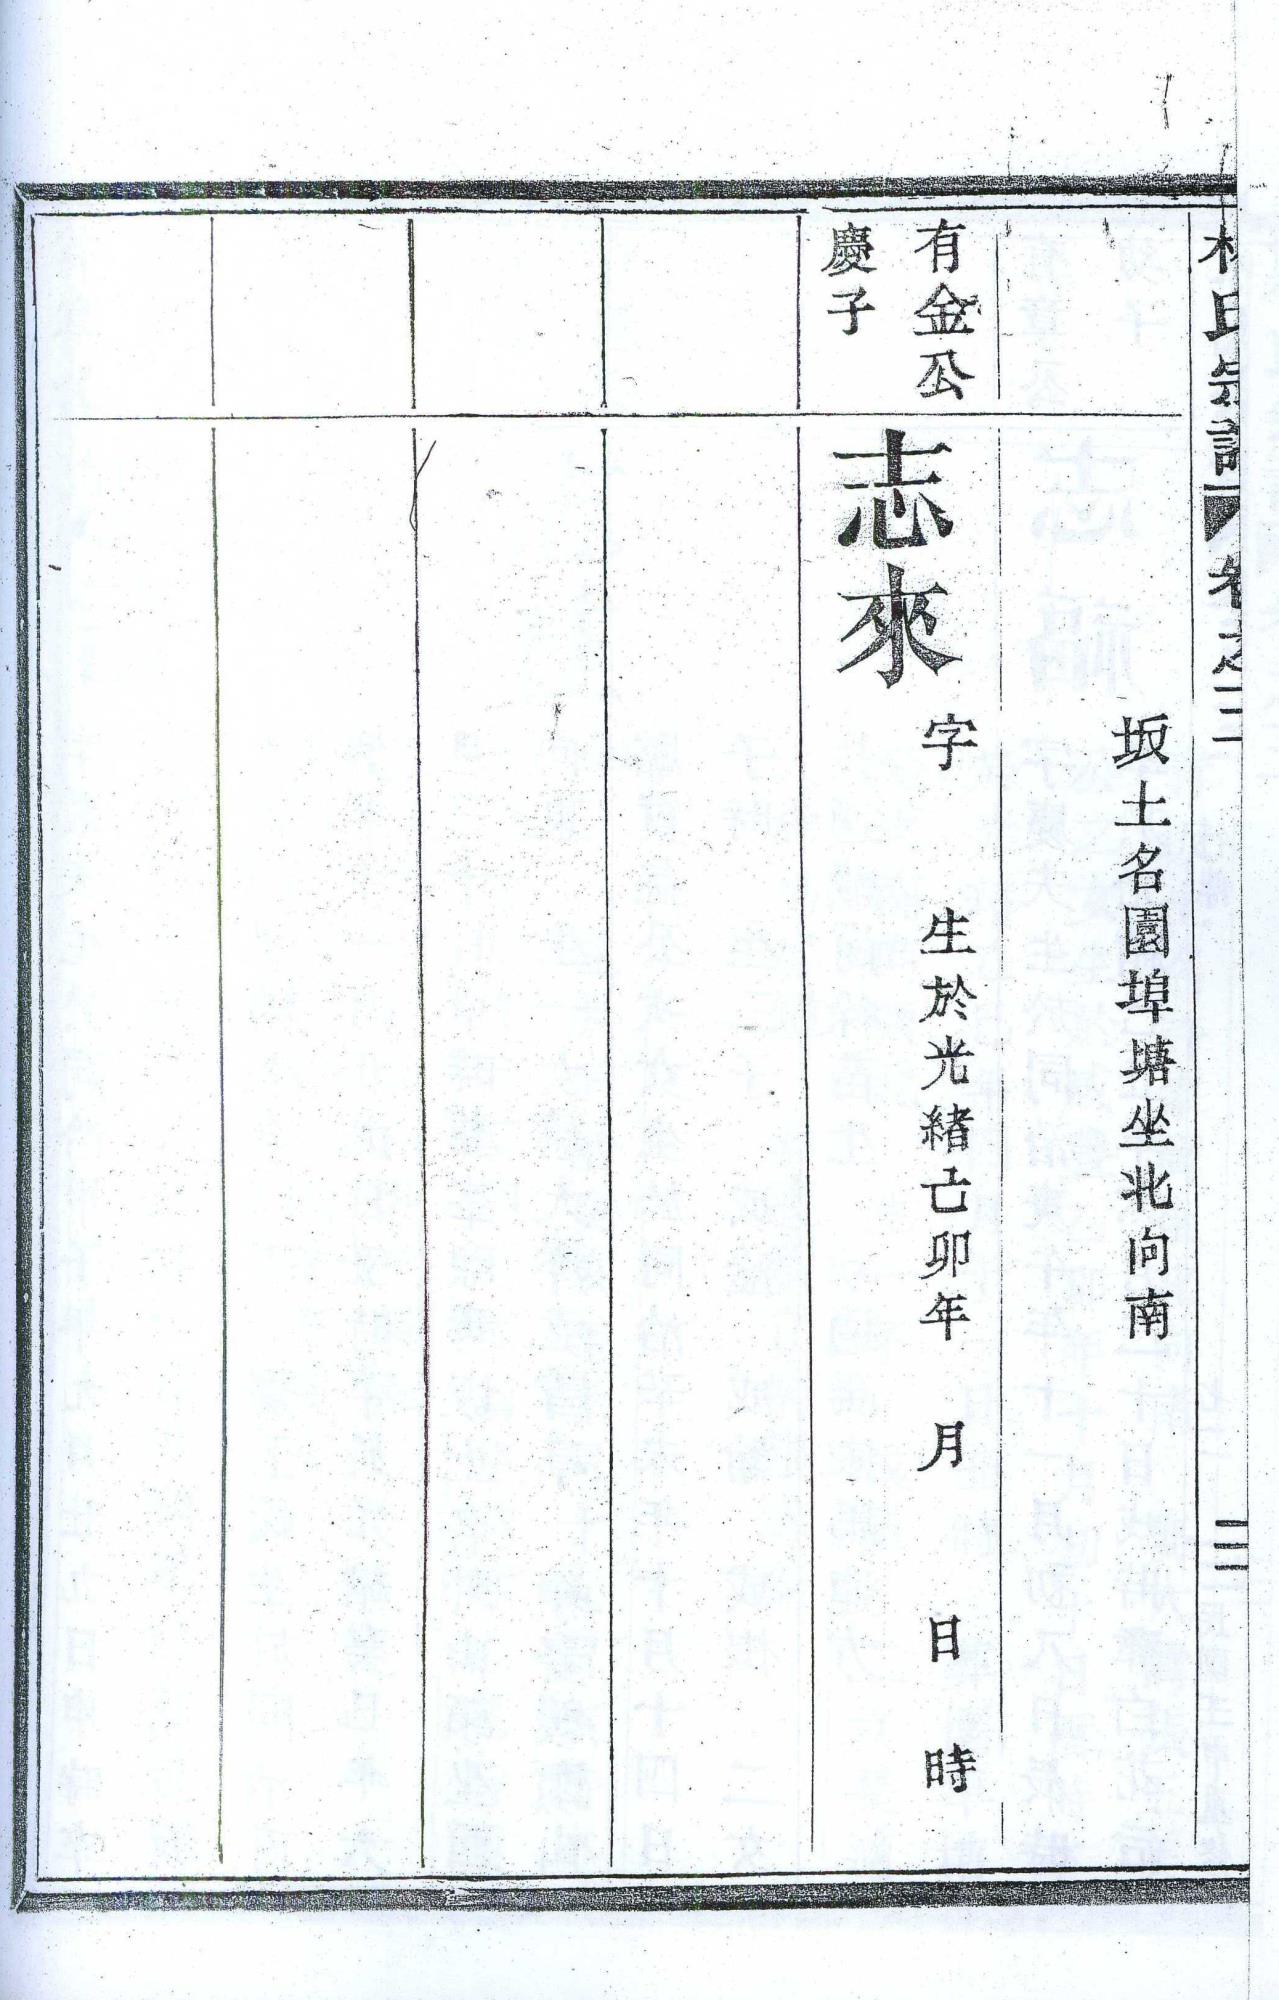 林氏宗譜 卷之二 三
坂土名園埠塘坐北向南
有金公
慶子
志來
字 生於光緒己卯年 月 日 時